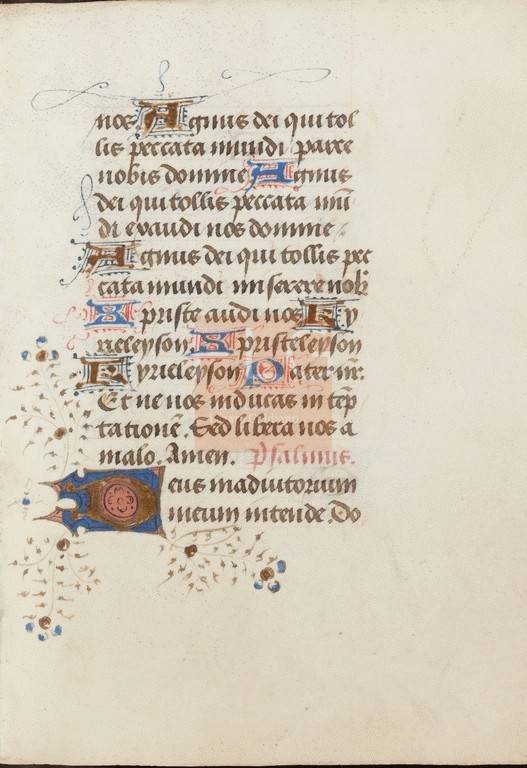 nos Agnus dei qui tol
lis peccata mundi parce
nobis domine Agnus
dei qui tollis peccata mū
di exaudi nos domine
Agnus dei qui tollis pec
cata mundi miserere nob
Xpriste audi nos Ky
rieleyson Xpristeleyson
Kyrieleyson Pater nr̄.
Et ne nos inducas in tēp
tationē. Sed libera nos a
malo. Amen. Psalmus.
Deus in adiutorium
meum intende. Do